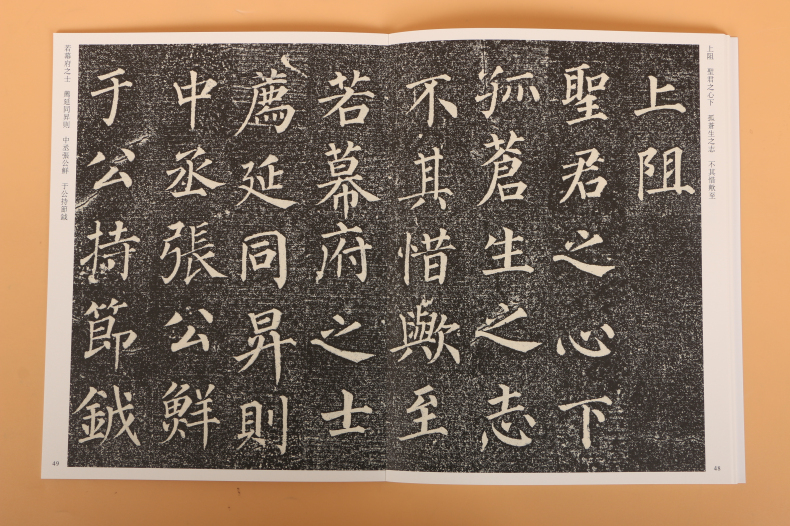 上阻 聖君之心下 孤蒼生之志 不其惜歟至
上阻
聖君之心下
孤蒼生之志
不其惜歟至
48
若幕府之士
薦延同昇則
中丞張公鮮
于公持節鉞
若幕府之士 薦延同昇則 中丞張公鮮 于公持節鉞
49